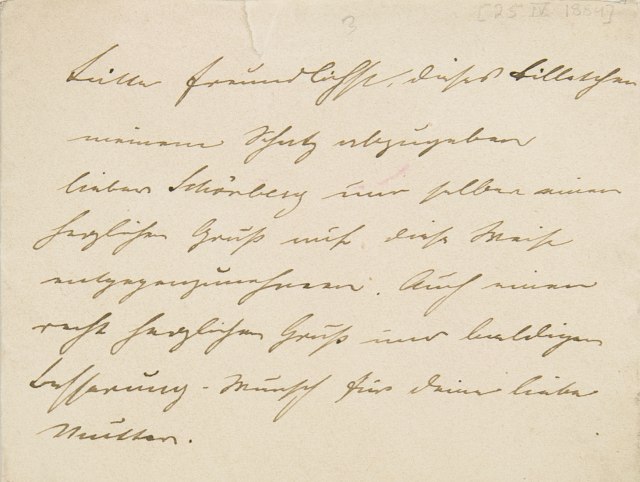 [25 IV 1884]
3
Bitte freundlichst, dieses Billetchen
meinem Schatz abzugeben
lieber Schönberg und selber einen
herzlichen Gruß auf diese Weise
entgegenzunehmen. Auch einen
recht herzlichen Gruß und baldigen
Besserung-Wunsch für deine liebe
Mutter.